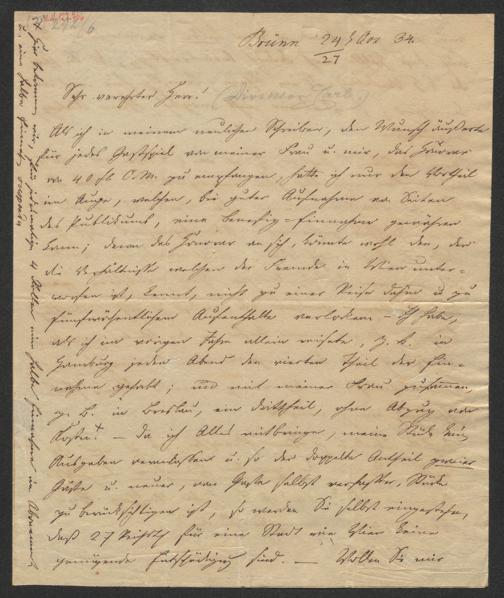 Brünn 24/27 Nov 34.
Sehr verehrter Herr!
Als ich in meinem neulichen Schreiben, den Wunsch äußerte
für jedes Gastspiel von meiner Frau u mir, das Honorar
von 40 fl C. M. zu empfangen, hatte ich nur den Vortheil
im Auge, welchen, bei guter Aufnahme von Seiten
des Publikums, eine Benefiz-Einnahme gewähren
kann; denn das Honorar an sich, könnte wohl den, der
die Verhältnisse welchen der Fremde in Wien unter-
worfen ist, kennt, nicht zu einer Reise dahin u zu
fünfwöchentlichem Aufenthalte verlocken – Ich habe,
als ich im vorigen Jahre allein reisete, z. B. in
Hamburg jeden Abend den vierten Theil der Ein-
nahme gehabt; und mit meiner Frau zusammen,
z. B. in Breslau, ein Drittheil, ohne Abzug der
Kosten. – Da ich Alles mitbringe, meine Stücke keine
Ausgaben veranlassen u. so der doppelte Antheil zweier
Gäste u. neuer, vom Gaste selbst verfaßter, Stücke
zu berücksichtigen ist, so werden Sie selbst eingestehen,
daß 27 für eine Stadt wie Wien keine
genügende Entschädigung sind. – Wollen Sie mir